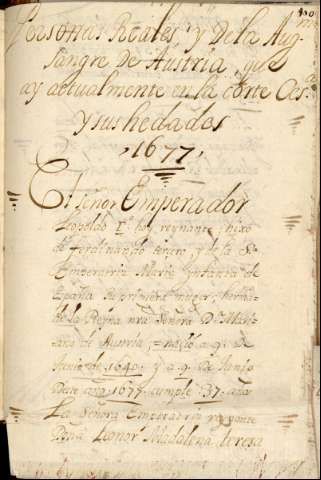 Personas Reales y De la Aug.
sangre De Austria, que
ay actualmente en la corte Ces.ª
y sus hedades
1677
El señor Emperador
Leopoldo I.º hoy reynante, hixo
de ferdinando tercero, y de la S.ª
Emperatriz Maria ynfanta de
España su primera muger, herma-
de la Reyna nra Señora D.ª Mari-
ana de Austria, nació a 9. de
Junio de 1640. y a 9. de Junio
Deste año 1677 cumple 37. años
La Señora Emperatriz reynante
Doña Leonor Madalena teresa